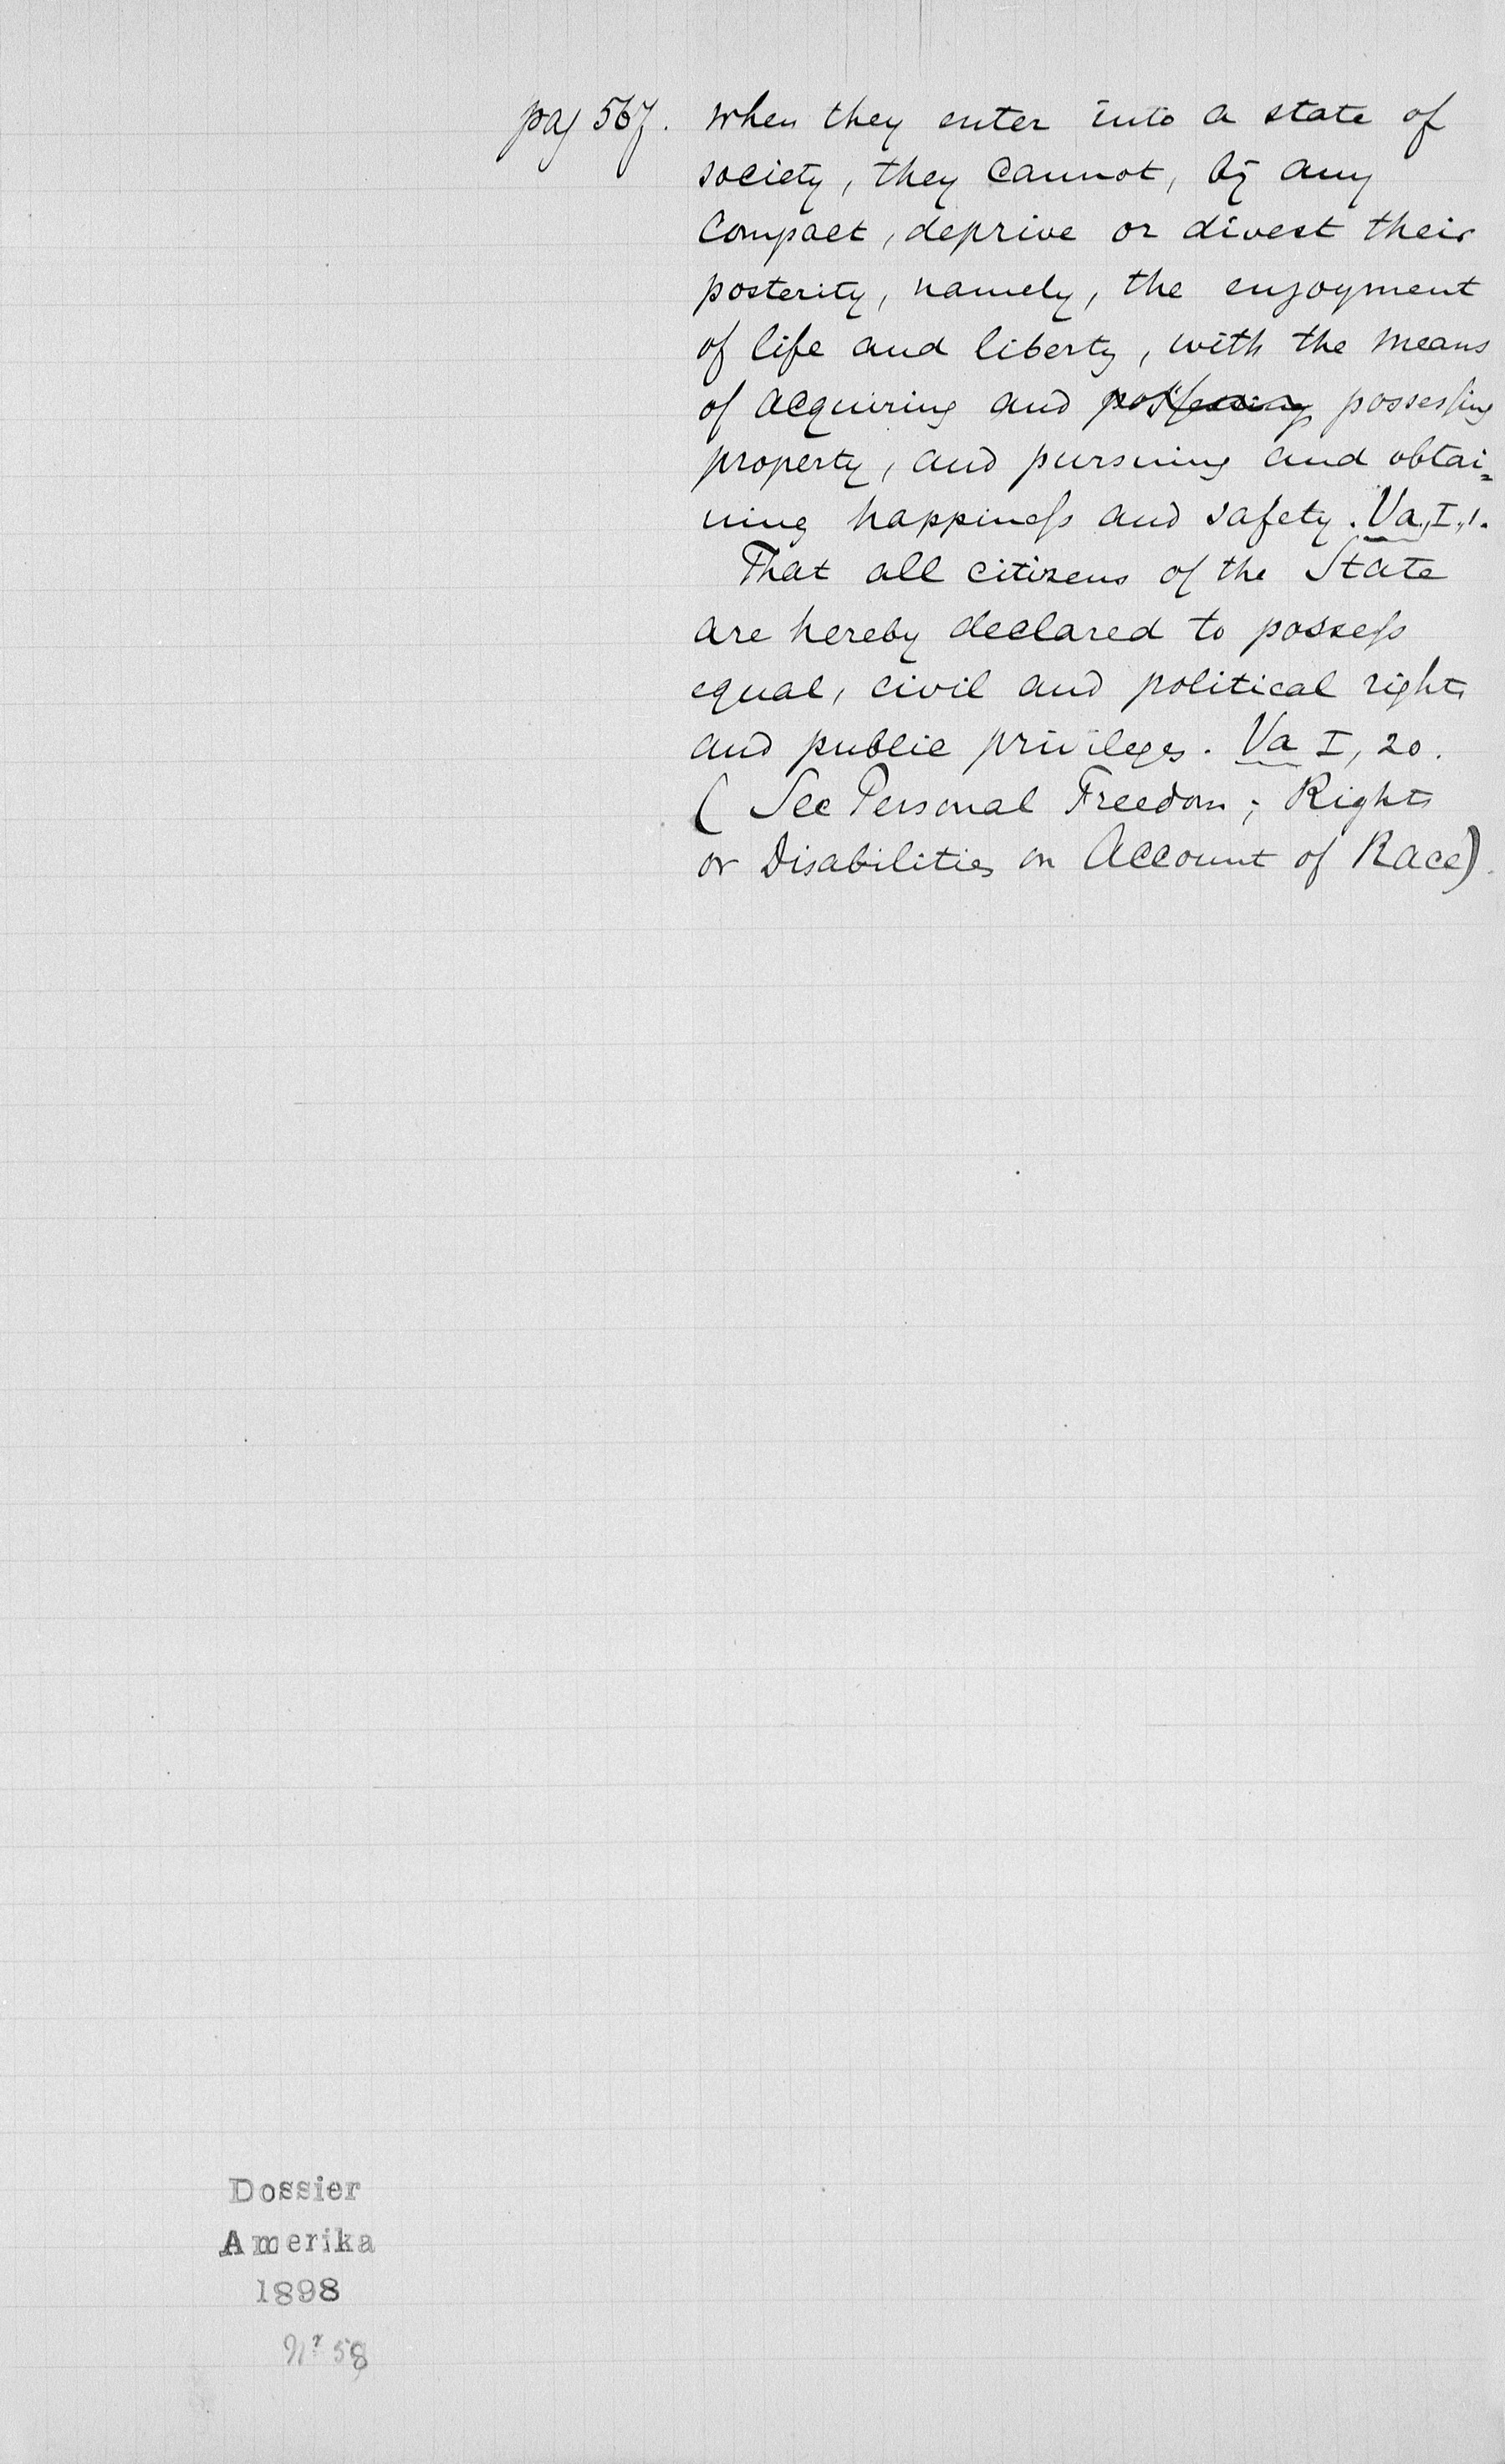 pag 567. when they enter into a state of
society, they cannot, by any
compact, deprive or divest their
posterity, namely, the enjoyment
of life and liberty, with the means
of acquiring and possessing
property, and pursuing and obtai=
ning happiness and safety. Va, I, 1.
That all citizens of the State
are hereby declared to possess
equal, civil and political rights
and public privileges. Va I, 20.
( See Personal Freedom; Rights
or Disabilities on Account of Race).
Dossier
Amerika
1898
Nr 58